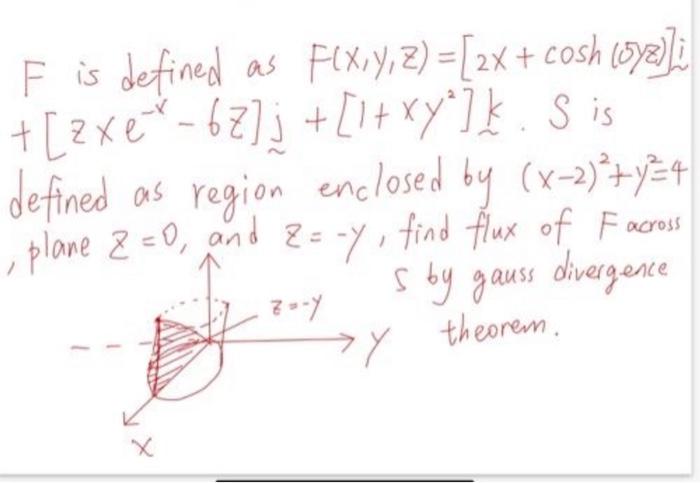 F is defined as F(x,y,z) = [2x + cosh (5yz)] i
+ [zxe⁻ˣ - 6z] j + [1 + xy²] k . S is
defined as region enclosed by (x-2)² + y² = 4
, plane z = 0, and z = -y , find flux of F across
S by gauss divergence
theorem.
z = -y
y
x